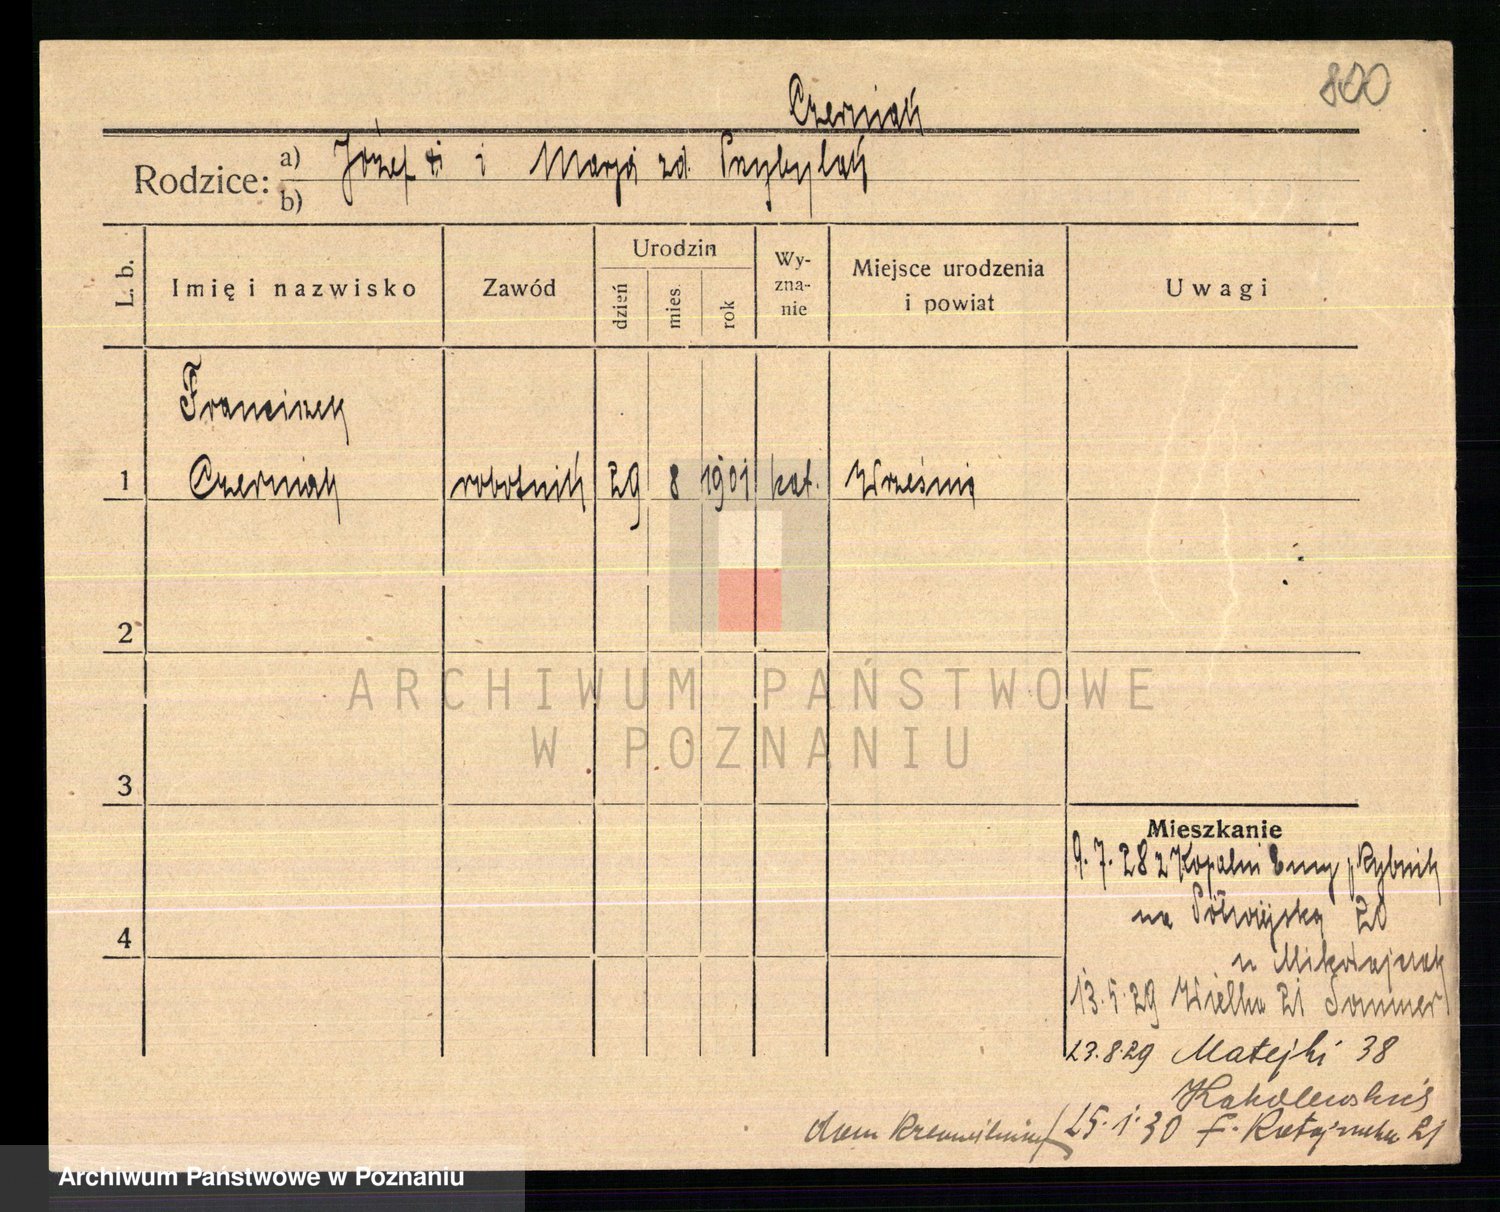 800
Czerniak
Rodzice: a) Józef i Marja zd. Przybylak
b)
L. b.
Imię i nazwisko
Zawód
Urodzin
dzień
mies.
rok
Wy-
zna-
nie
Miejsce urodzenia
i powiat
Uwagi
Franciszek
1 Czerniak robotnik 29 8 1901 kat. Września
2
3
4
Mieszkanie
9.7.28 z Kopalni Emy p. Rybnik
na Półwiejską 20
u Mikołajczak
13.5.29 Wielka 21 Sommer
23.8.29 Matejki 38
dom 25.1.30 F. Ratajczaka 21
ARCHIWUM PAŃSTWOWE
W POZNANIU
Archiwum Państwowe w Poznaniu